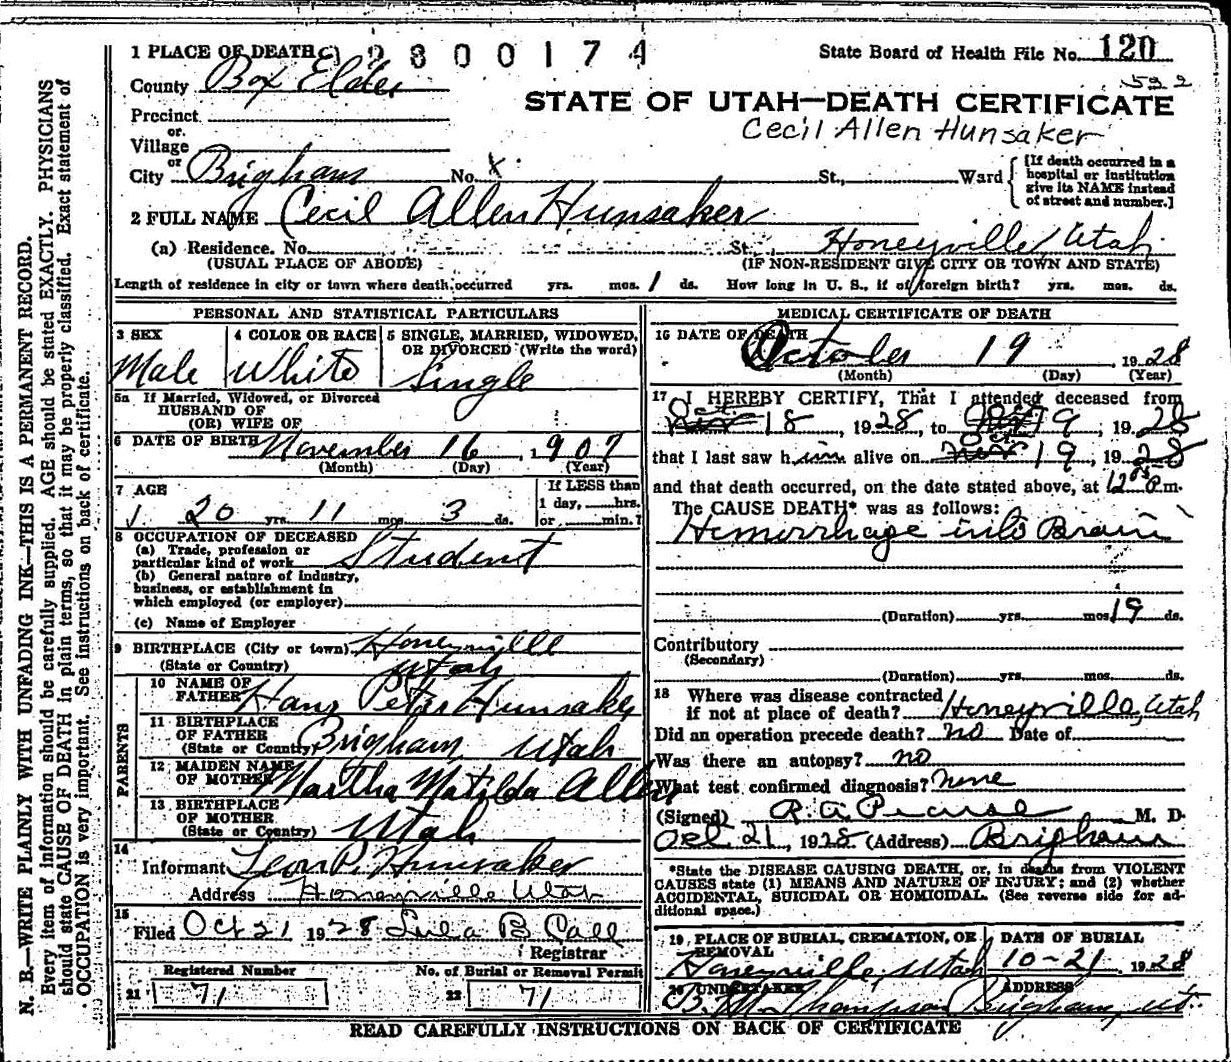 1 PLACE OF DEATH 2300174 State Board of Health File No. 120
County Box Elder
STATE OF UTAH—DEATH CERTIFICATE
Precinct
Cecil Allen Hunsaker
or
Village
or
City Brigham No. X St., Ward [If death occurred in a hospital or institution give its NAME instead of street and number.]
2 FULL NAME Cecil Allen Hunsaker
(a) Residence. No. St., Honeyville, Utah
(USUAL PLACE OF ABODE) (IF NON-RESIDENT GIVE CITY OR TOWN AND STATE)
Length of residence in city or town where death occurred yrs. mos. 1 ds. How long in U. S., if of foreign birth? yrs. mos. ds.
PERSONAL AND STATISTICAL PARTICULARS
3 SEX 4 COLOR OR RACE 5 SINGLE, MARRIED, WIDOWED, OR DIVORCED (Write the word)
Male White Single
5a If Married, Widowed, or Divorced
HUSBAND OF
(OR) WIFE OF
6 DATE OF BIRTH November 16, 1907
(Month) (Day) (Year)
7 AGE If LESS than
1 day, hrs.
20 yrs. 11 mos. 3 ds. or min.?
8 OCCUPATION OF DECEASED
(a) Trade, profession or
particular kind of work Student
(b) General nature of industry,
business, or establishment in
which employed (or employer)
(c) Name of Employer
9 BIRTHPLACE (City or town) Honeyville
(State or Country) Utah
PARENTS
10 NAME OF
FATHER Hans Peter Hunsaker
11 BIRTHPLACE
OF FATHER
(State or Country) Brigham, Utah
12 MAIDEN NAME
OF MOTHER Martha Matilda Allen
13 BIRTHPLACE
OF MOTHER
(State or Country) Utah
14
Informant Leon P. Hunsaker
Address Honeyville Utah
15
Filed Oct 21 1928 Lula B Call
Registrar
Registered Number No. of Burial or Removal Permit
21 71 22 71
MEDICAL CERTIFICATE OF DEATH
16 DATE OF DEATH
October 19, 1928
(Month) (Day) (Year)
17 I HEREBY CERTIFY, That I attended deceased from
Oct 18, 1928, to Oct 19, 1928
that I last saw him alive on Oct 19, 1928
and that death occurred, on the date stated above, at 12 P.m.
The CAUSE DEATH* was as follows:
Hemorrhage into Brain
(Duration) yrs. mos. 19 ds.
Contributory
(Secondary)
(Duration) yrs. mos. ds.
18 Where was disease contracted
if not at place of death? Honeyville, Utah
Did an operation precede death? no Date of
Was there an autopsy? no
What test confirmed diagnosis? none
(Signed) R. A. Pearse M. D.
Oct 21, 1928 (Address) Brigham
*State the DISEASE CAUSING DEATH, or, in deaths from VIOLENT
CAUSES state (1) MEANS AND NATURE OF INJURY; and (2) whether
ACCIDENTAL, SUICIDAL OR HOMICIDAL. (See reverse side for ad-
ditional space.)
19 PLACE OF BURIAL, CREMATION, OR REMOVAL DATE OF BURIAL
Honeyville, Utah 10-21 1928
20 UNDERTAKER ADDRESS
B. M. Thompson Brigham, Ut.
READ CAREFULLY INSTRUCTIONS ON BACK OF CERTIFICATE
N. B.—WRITE PLAINLY WITH UNFADING INK—THIS IS A PERMANENT RECORD.
Every item of information should be carefully supplied. AGE should be stated EXACTLY. PHYSICIANS
should state CAUSE OF DEATH in plain terms, so that it may be properly classified. Exact statement of
OCCUPATION is very important. See instructions on back of certificate.